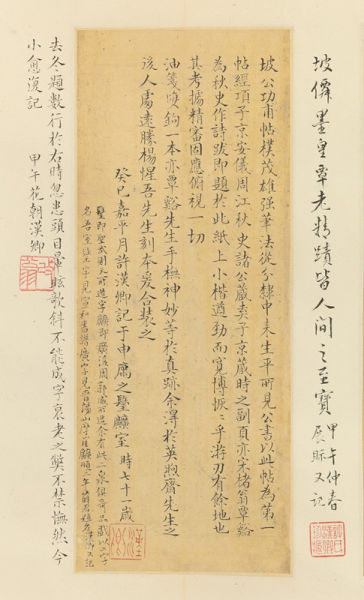 坡僊墨皇覃老精蹟皆人間之至寶
甲午仲春
展眎又記
坡公功甫帖樸茂雄强筆法從分隸中来生平所見公書以此帖為第一
帖經項子京安儀周江秋史諸公藏弆子京藏時之副頁亦宋楮翁覃谿
為秋史作詩跋即題於此紙上小楷遒勁而寛博捩一乎游刃有餘地也
其考據精審固應俯視一切
油箋䧺鉤一本亦覃谿先生手橅神妙等於真跡余淂於英煦齋先生之
後人處遠勝楊惺吾先生刻本爰合裝之
癸巳嘉平月許漢卿記于申廎之
室時七十一歲
去冬題數行於右時忽患頭目暈眩欹斜不能成字衰老之獘不禁憮然今
小愈復記
甲午花朝漢卿